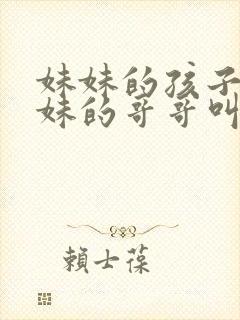 妹妹的孩子
妹的哥哥叫
賴士葆